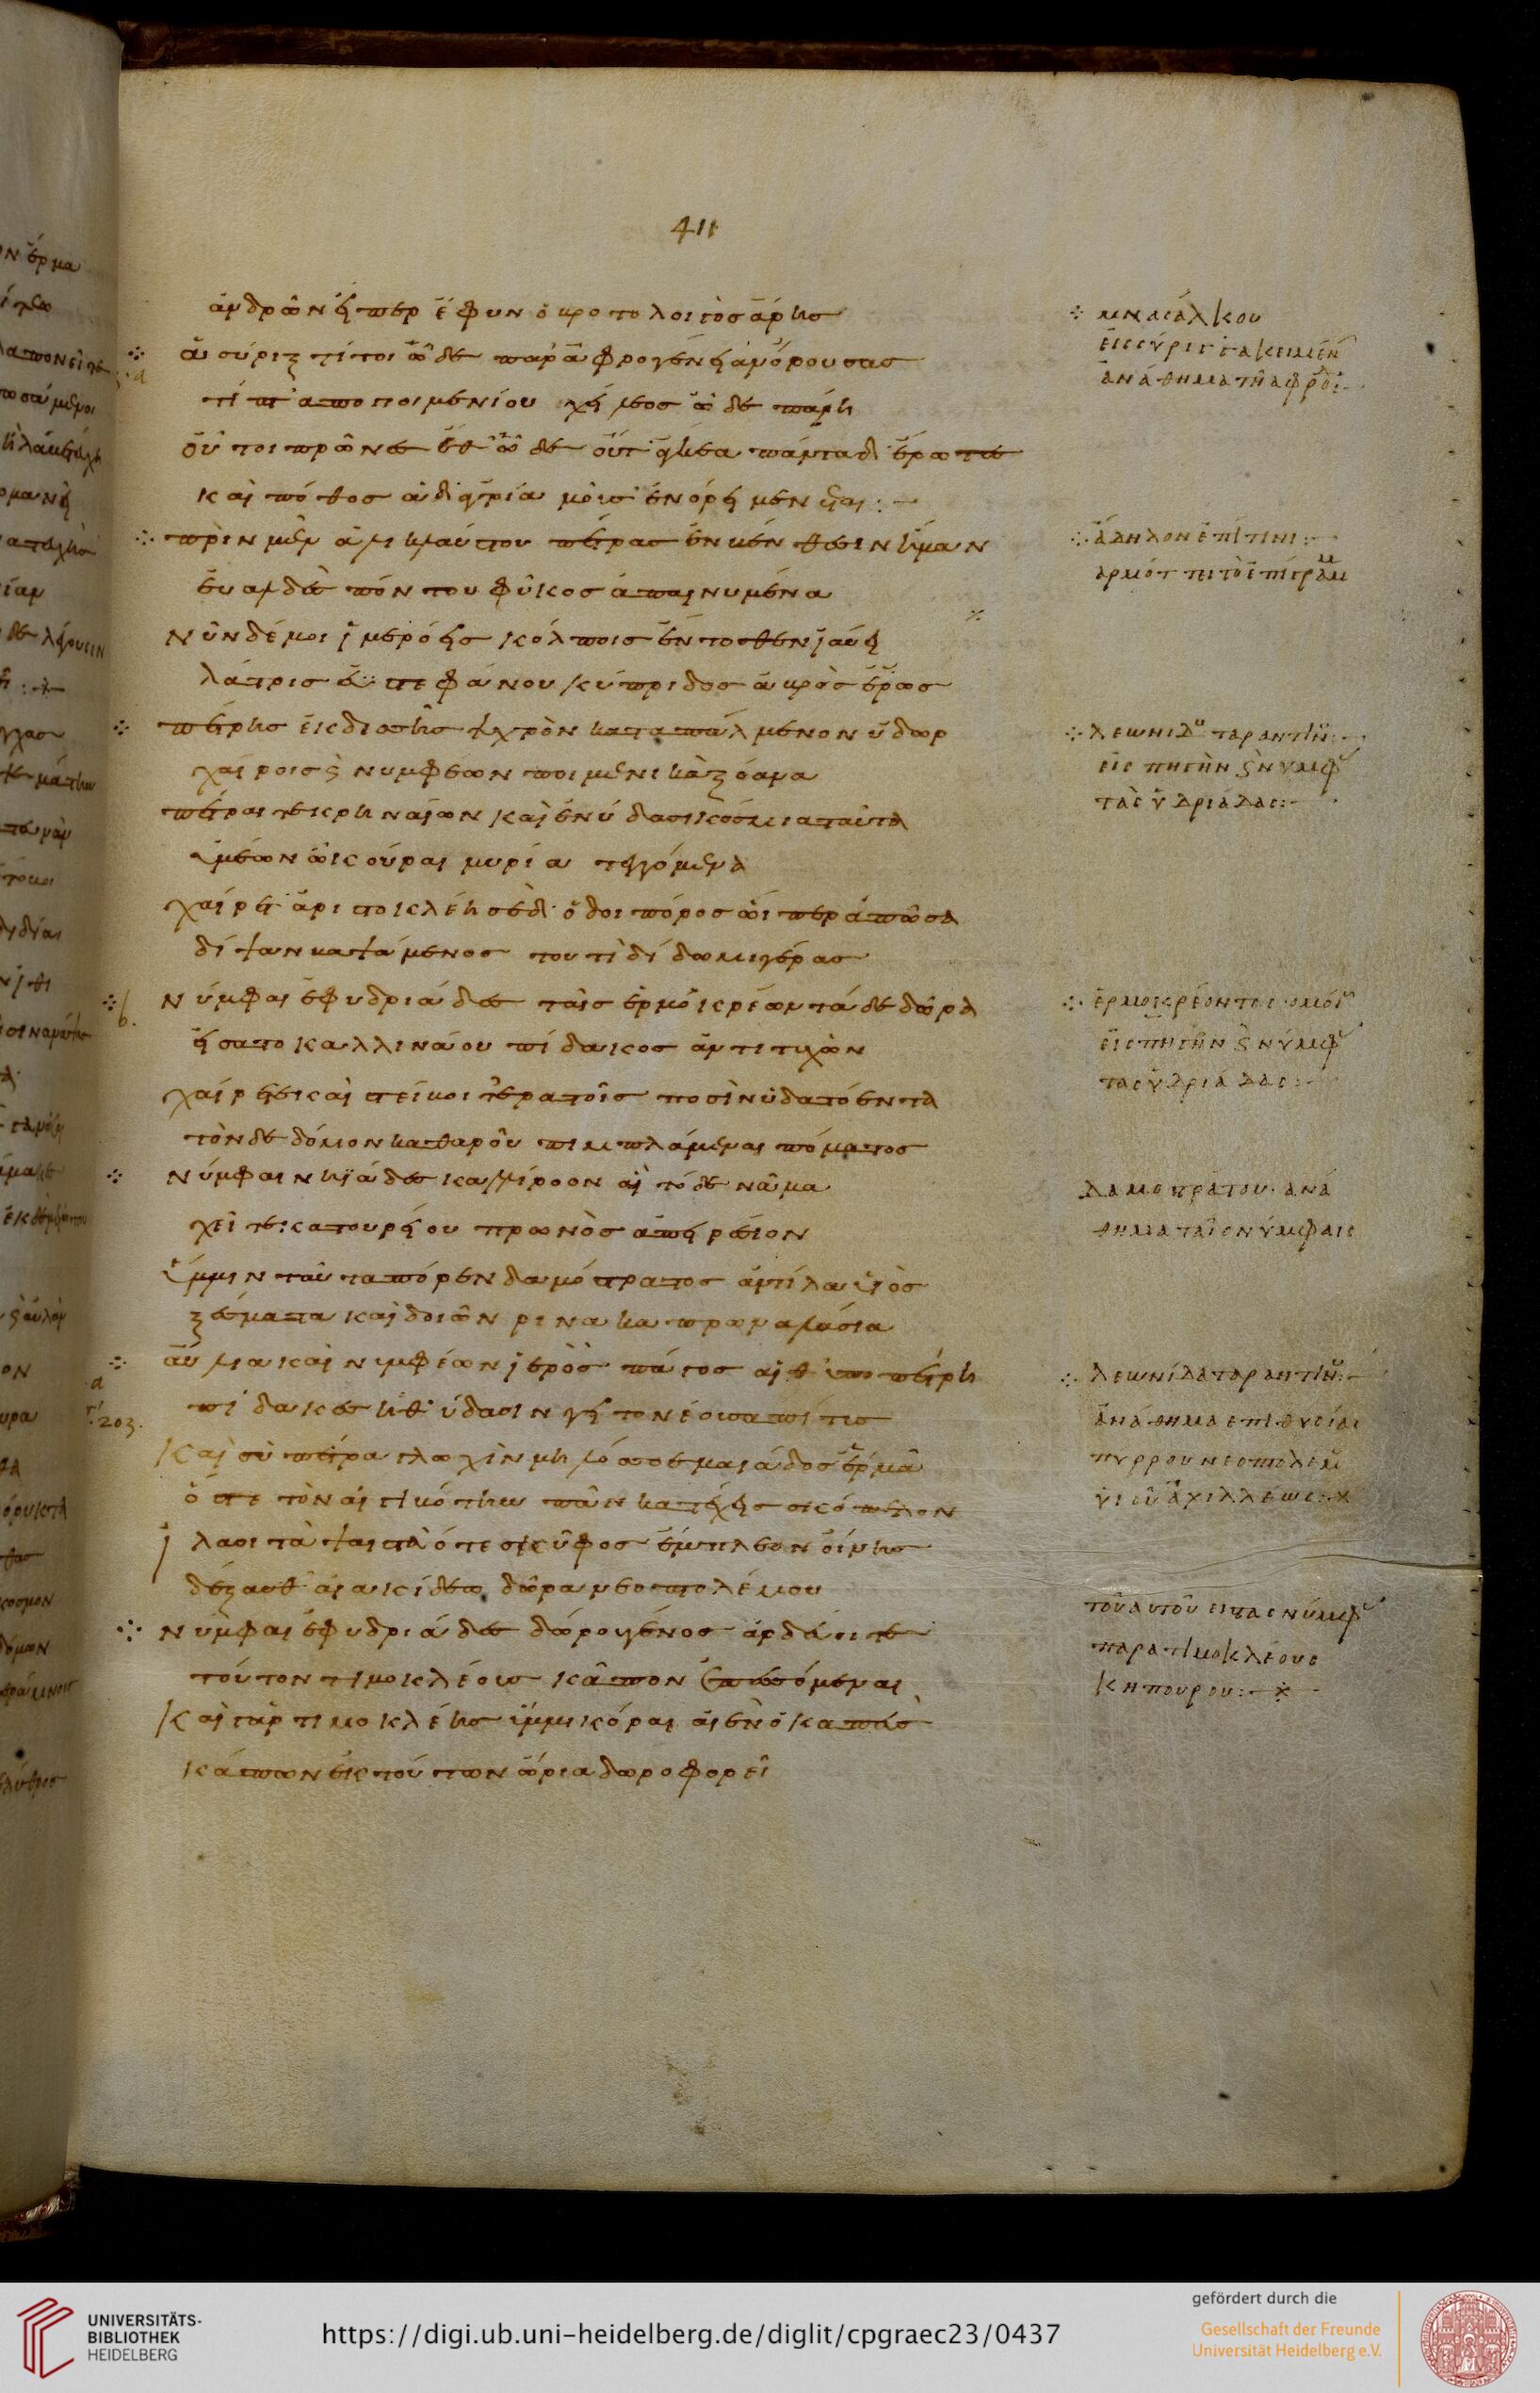 411
ἀνδρῶν ἥπερ ἔφυν ὁ βροτολοιγὸσ ἄρησ
ἁ σύριξ τί τοι ὧδε παρ᾽ ἀφρογένει ἀνόρουσασ
τί πτ᾽ απο ποιμενίου χείλεοσ ὧδε πάρη
οὔ τοι πρῶνεσ ἔθ᾽ ὧδε οὔτ᾽ ἄγκεα πάντα δ᾽ ἔρωτεσ
καὶ πόθοσ ἁ δ᾽ ἀγρία μοῖσ᾽ ἐν ὄρει μενεται:
πρὶν μὲν ἁλικλαύστου πέτρασ ἐν βένθεσιν ἥμαν
εὐαλδὲσ πόντου φῦκοσ ἀπαινυμένα
νῦν δέ μοι ἱμερόεισ κόλποισ ἔντοσθεν ἰαύει
λάτρισ στεφάνου κύπριδοσ ἁβρὸσ ἔρωσ
πέτρησ ἐκ δισσῆσ ψυχρὸν καταπάλμενον ὕδωρ
χαίροισ ϛ νυμφέων ποιμενικὰ ξόανα
πέτραι τε κρηναίων καὶ ἐν ὕδασι κόσμια ταῦτα
ὑμέων ὦ κούραι μυρία τεγγόμενα
χαίρετ᾽ ἀριστοκλέησ ὁδοιπόροσ ὧιπερ ἀπῶσα
δίψαν βαψάμενοσ τουτὶ δίδωμι γέρασ
νύμφαι ἐφυδριάδεσ ταῖσ ἑρμοκρέων τάδε δῶρα
εἵσατο καλλινάου πίδακοσ ἀντιτυχὼν
χαίρετε καὶ στείβοιτ᾽ ἐρατοῖσ ποσὶν ὑδατόεντα
τόνδε δόμον καθαροῦ πιμπλάμεναι πόματοσ
νύμφαι νηϊάδεσ καλλίροον αἳ τόδε νᾶμα
χεῖτε κατουρείου πρωνὸσ ἀπειρέσιον
ὔμμιν ταῦτα πόρεν δαμόστρατοσ ἀντίλα υἱὸσ
ξέσματα καὶ δοιῶν ρινα καπρων λάσια
αὔλια καὶ νυμφέων ἱερὸσ πάγοσ αἵ θ᾽ ὑπὸ πέτρη
πίδακεσ ἥ θ᾽ ὕδασιν γειτονέουσα πίτυσ
καὶ σὺ τετραγλώχιν μηλόσσοε μαιάδοσ ἑρμᾶ
ὅστε τὸν αἰγιβότην πᾶν κατέχεισ σκόπελον
ἵλαοι τὰ ψαιστὰ τό τε σκύφοσ ἔμπλεον οἴνησ
δέξασθ᾽ αἰακίδεω δῶρα νεοπτολέμου
νύμφαι ἐφυδριάδεσ δώρου γένοσ ἀρδεύοιτε
τοῦτον τιμοκλέουσ κᾶπον ἐπεσσύμεναι
καὶ γὰρ τιμοκλέησ ὔμμι κόραι αἰὲν ὁ καπεὺσ
κάπων ἐκ τούτων ὥρια δωροφορεῖ
μνασάλκου
εἰς σύριγγα κειμέν
ἀνάθημα τῆ ἀφροδί
ἄδηλον ἐπί τινι
λεωνίδου ταραντίν
εἰς πηγὴν ϛ νυμφ
τὰς ὑδριάδας:
ἑρμοκρέοντος ὁμοί
εἰς πηγὴν ϛ νύμφ
τὰς ὑδριάδας:
δαμοστράτου ἀνά
θημα ταῖς νύμφαις
λεωνίδα ταραντίν
ἀνάθημα επι θυσίαι
πυρρου νεοπτολέμ
υἱοῦ ἀχιλλέως:
τοῦ αυτοῦ εις τας νύμφ
παρα τιμοκλέους
κηπουρου:
UNIVERSITÄTS-
BIBLIOTHEK
HEIDELBERG
https://digi.ub.uni-heidelberg.de/diglit/cpgraec23/0437
gefördert durch die
Gesellschaft der Freunde
Universität Heidelberg e.V.